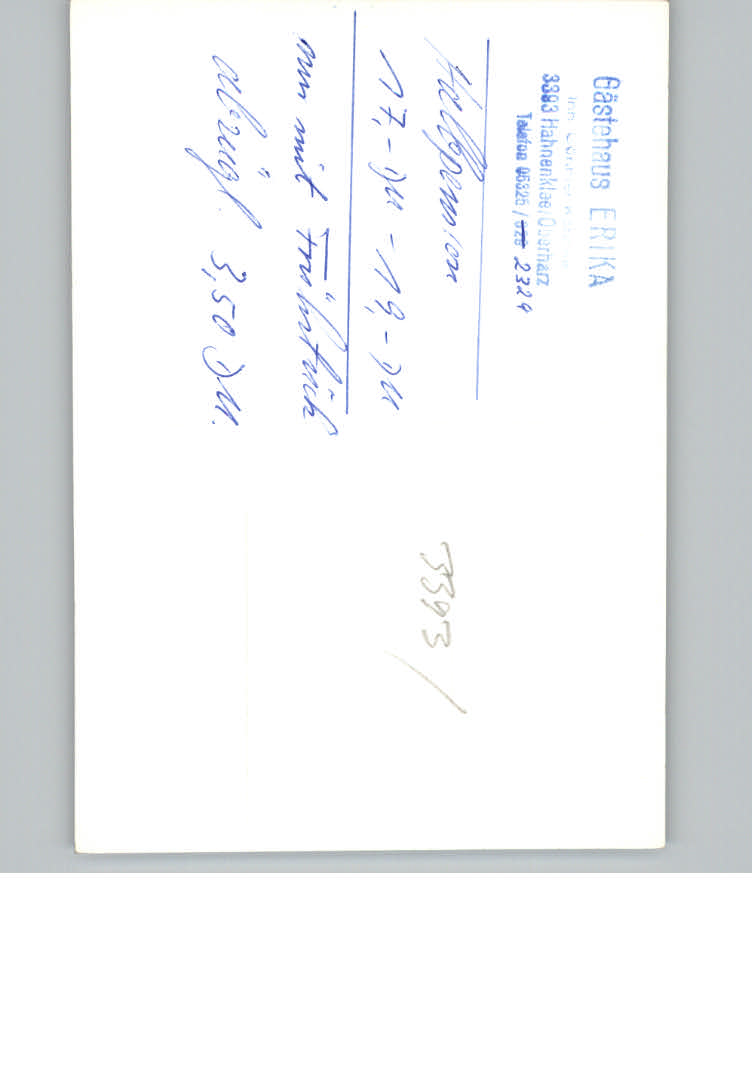 Gästehaus ERIKA
3393 Hahnenklee/Oberharz
Telefon 05325 / 2324
Halbpension
17,- DM - 19,- DM
nur mit Frühstück
abzügl. 3,50 DM.
3393